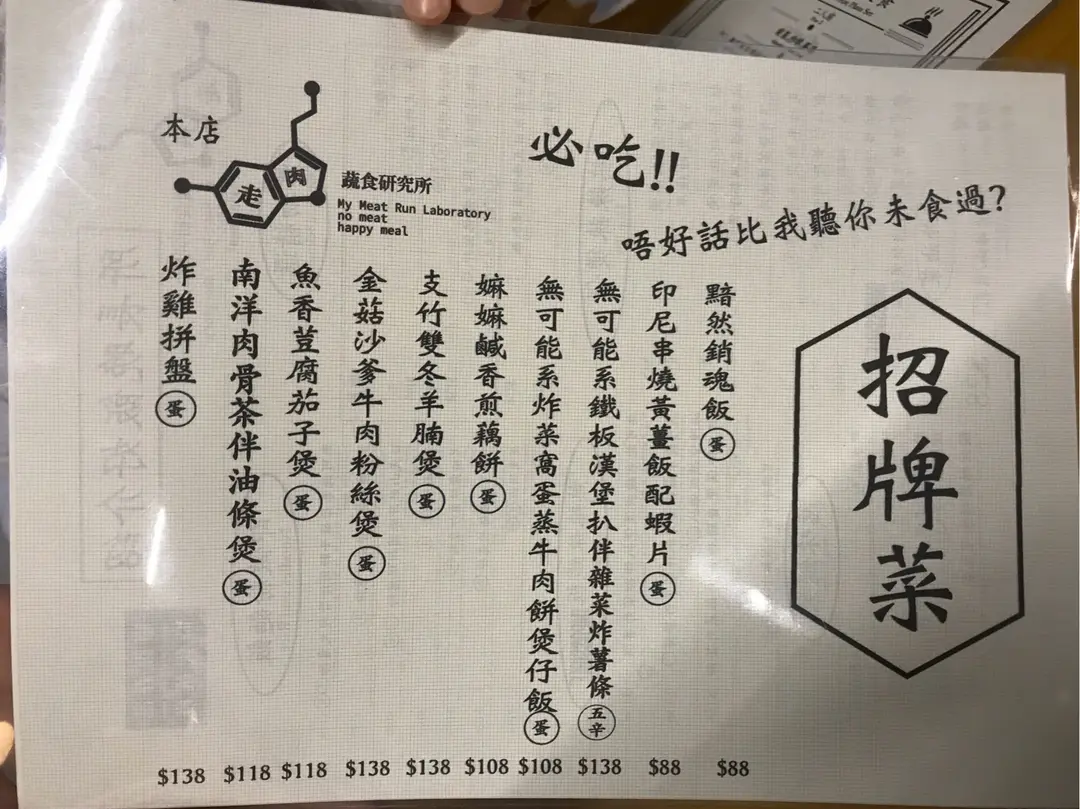 本店
走肉
蔬食研究所
My Meat Run Laboratory
no meat
happy meal
必吃!!
唔好話比我聽你未食過?
招牌菜
黯然銷魂飯 蛋 $88
印尼串燒黃薑飯配蝦片 蛋 $88
無可能系鐵板漢堡扒伴雜菜炸薯條 五辛 $138
無可能系炸菜窩蛋蒸牛肉餅煲仔飯 蛋 $108
嫲嫲鹹香煎藕餅 蛋 $108
支竹雙冬羊腩煲 蛋 $138
金菇沙爹牛肉粉絲煲 蛋 $138
魚香荳腐茄子煲 蛋 $118
南洋肉骨茶伴油條煲 蛋 $118
炸雞拼盤 蛋 $138